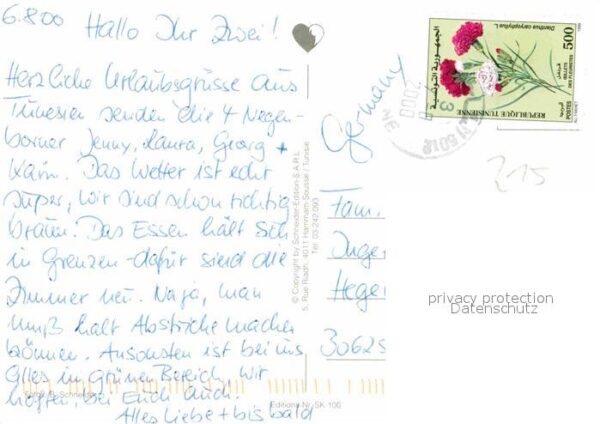 6.8.00 Hallo Ihr Zwei!
Herzliche Urlaubsgrüsse aus
Tunesien senden die 4 Negen-
borner Jenny, Laura, Georg +
Karin. Das Wetter ist echt
super, wir sind schon richtig
braun. Das Essen hält sich
in Grenzen - dafür sind die
Zimmer neu. Naja, man
muß halt Abstriche machen
können. Ansonsten ist bei uns
alles im Grünen Bereich, wir
hoffen, bei Euch auch!
Alles Liebe + bis bald
Germany
Fam.
Inge
Hege
30625
215
Dianthus caryophyllus L.
الجمهورية التونسية
500
OEILLETS DES FLEURISTES
القرنفل
POSTES
البريد
REPUBLIQUE TUNISIENNE
2000
© Copyright by Schneider-Edition-S.A.R.L.
5, Rue Riadh, 4011 Hammam Sousse / Tunisie
Tél. 03-242.090
Schneider
Editions-Nr. SK 100
privacy protection
Datenschutz